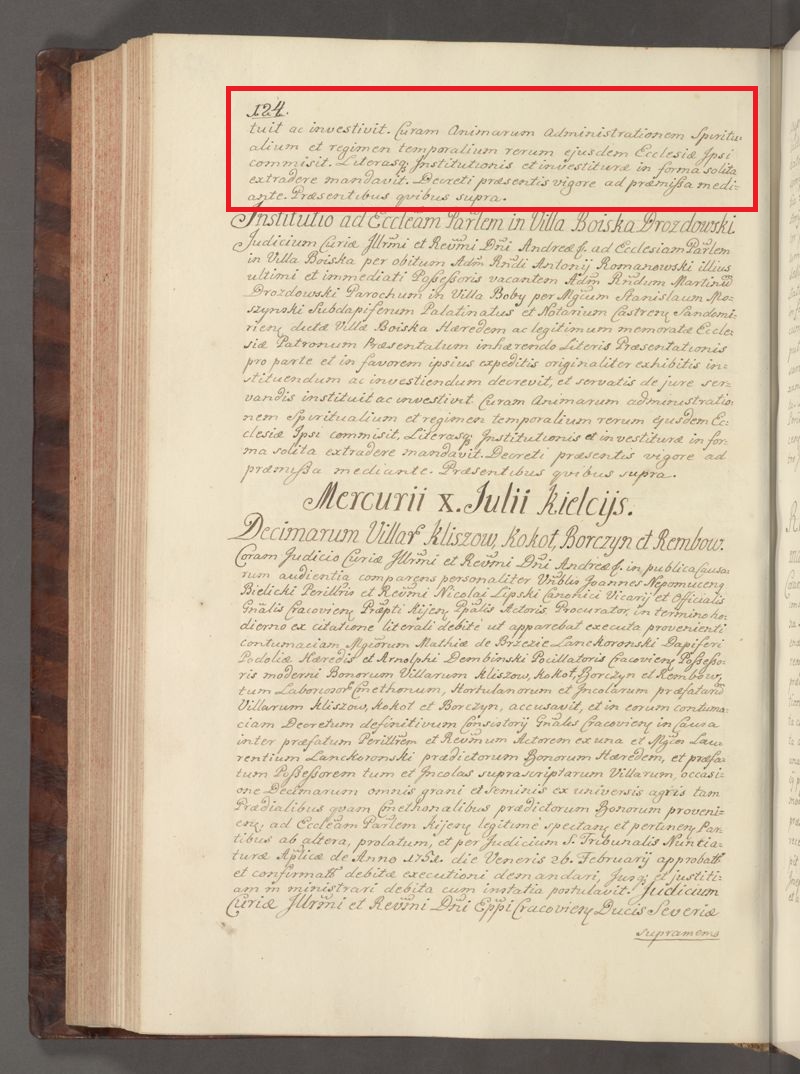 124.
tuit ac investivit. Curam Animarum Administrationem Spiritu-
alium et regimen temporalium rerum ejusdem Ecclesiæ Ipsi
commisit. Literasq; Institutionis et investituræ in forma solita
extradere mandavit. Decreti præsentis vigore ad præmissa medi-
ante. Præsentibus qvibus supra.
Institutio ad Eccleam Parlem in Villa Boiska Drozdowski.
Judicium Curiæ Illrmi et Revmi Dni Andreæ f. ad Ecclesiam Parlem
in Villa Boiska per obitum Adm Rndi Antonij Romanowski illius
ultimi et immediati Possessoris vacantem Adm Rndum Martinum
Drozdowski Parochum in Villa Boby per Mgcum Stanislaum Mo-
szynski Subdapiferum Palatinatus et Notarium Castren Sandomi-
rien dictæ Villæ Boiska Hæredem ac legitimum memoratæ Eccle-
siæ Patronum Præsentatum inhærendo Literis Præsentationis
pro parte et in favorem ipsius expeditis originaliter exhibitis in-
stituendum ac investiendum decrevit, et servatis de jure ser-
vandis instituit ac investivit. Curam Animarum administratio-
nem Spiritualium et regimen temporalium rerum ejusdem Ec-
clesiæ Ipsi commisit, Literasq; Institutionis et investituræ in for-
ma solita extradere mandavit. Decreti præsentis vigore ad
præmissa mediante. Præsentibus qvibus supra.
Mercurii x. Julii Kielcijs.
Decimarum Villar Kliszow, Kokot, Borczyn et Rembow.
Coram Judicio Curiæ Illrmi et Revmi Dni Andreæ f. in publica Causa-
rum audientia comparens personaliter Vnblis Joannes Nepomuceng
Bielicki Perillris et Revmi Nicolai Lipski Canonici Vicarij et Officialis
Gnalis Cracovien Præpti Kijen Ppalis Actoris Procurator, in termino ho-
dierno ex citatione literali debitè ut apparebat executa provenienti
contumaciam Mgcorum Mathiæ de Brzezie Lanckoronski Dapiferi
Podoliæ Hæredis et Arnolphi Dembinski Pocillatoris Cracovien Possesso-
ris moderni Bonorum Villarum Kliszow, Kokot, Borczyn et Rembow,
tum Laboriosor Cmethonum, Hortulanorum et Incolarum præfatarum
Villarum Kliszow, Kokot et Borczyn, accusavit, et in eorum contuma-
ciam Decretum definitivum Consistorij Gnalis Cracovien in Causa
inter præfatum Perillrem et Revmum Actorem ex una et Mgcos Lau-
rentium Lanckoronski prædictorum Bonorum Hæredem, et præfa-
tum Possessorem tum et Incolas suprascriptarum Villarum, occasi-
one Decimarum omnis grani et Seminis ex universis agris tam
Prædialibus qvam Cmethonalibus prædictorum Bonorum proveni-
en, ad Eccleam Parlem Kijen legitimè spectan et pertinen Par-
tibus ab altera, prolatum, et per Judicium S. Tribunalis Nuntia-
turæ Aplicæ de Anno 1752. die Veneris 26. Februarij approbatum
et confirmatum debitæ executioni demandari, Jurq; et justiti-
am ministrari debita cum instantia postulavit. Judicium
Curiæ Illrmi et Revmi Dni Eppi Cracovien Ducis Severiæ
supramems